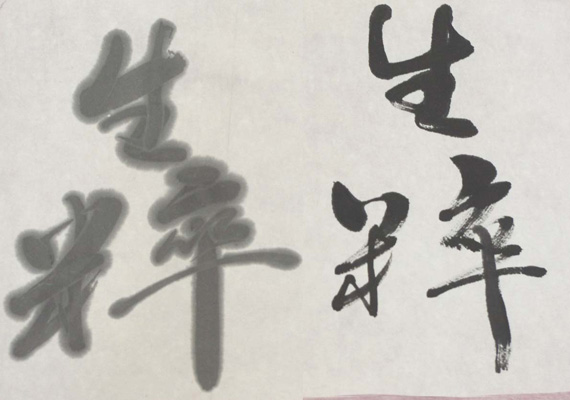 生粹
生粹